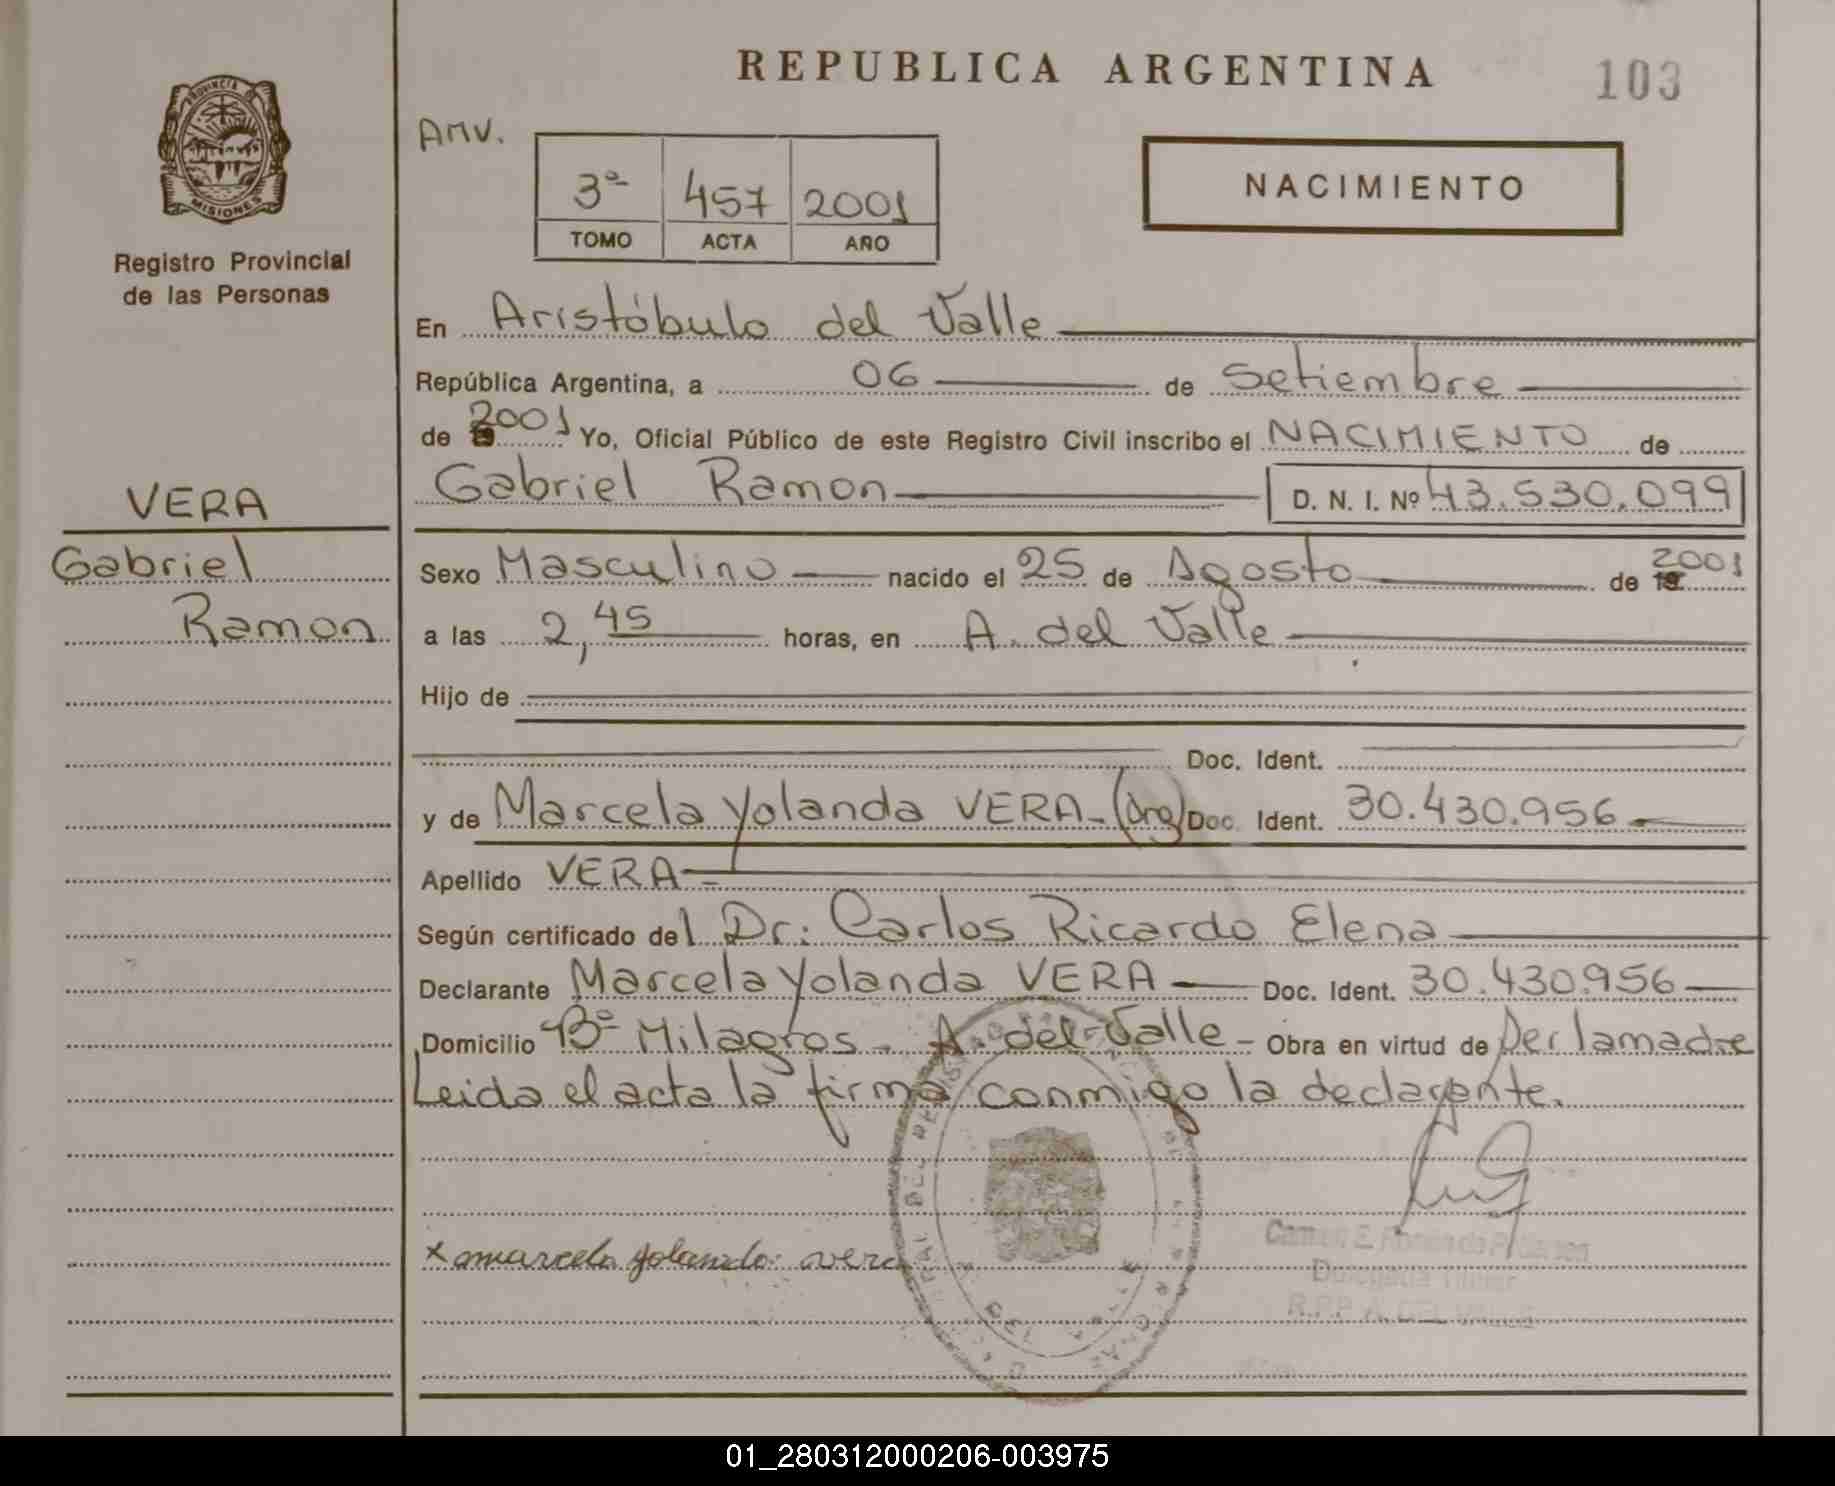 REPUBLICA ARGENTINA
103
PROVINCIA DE
MISIONES
Registro Provincial
de las Personas
AMV.
3ª 457 2001
TOMO ACTA AÑO
NACIMIENTO
En Aristóbulo del Valle
República Argentina, a 06 de Setiembre
de 2001 Yo, Oficial Público de este Registro Civil inscribo el NACIMIENTO de
Gabriel Ramon D. N. I. Nº 43.530.099
VERA
Gabriel
Ramon
Sexo Masculino nacido el 25 de Agosto de 2001
a las 2,45 horas, en A. del Valle
Hijo de
Doc. Ident.
y de Marcela Yolanda VERA-(Arg) Doc. Ident. 30.430.956
Apellido VERA
Según certificado del Dr: Carlos Ricardo Elena
Declarante Marcela Yolanda VERA Doc. Ident. 30.430.956
Domicilio Bº Milagros - A. del Valle - Obra en virtud de Decl amadre
Leida el acta la firma conmigo la declarante.
x marcela yolanda vera
R.P.P. A. DEL VALLE
01_280312000206-003975